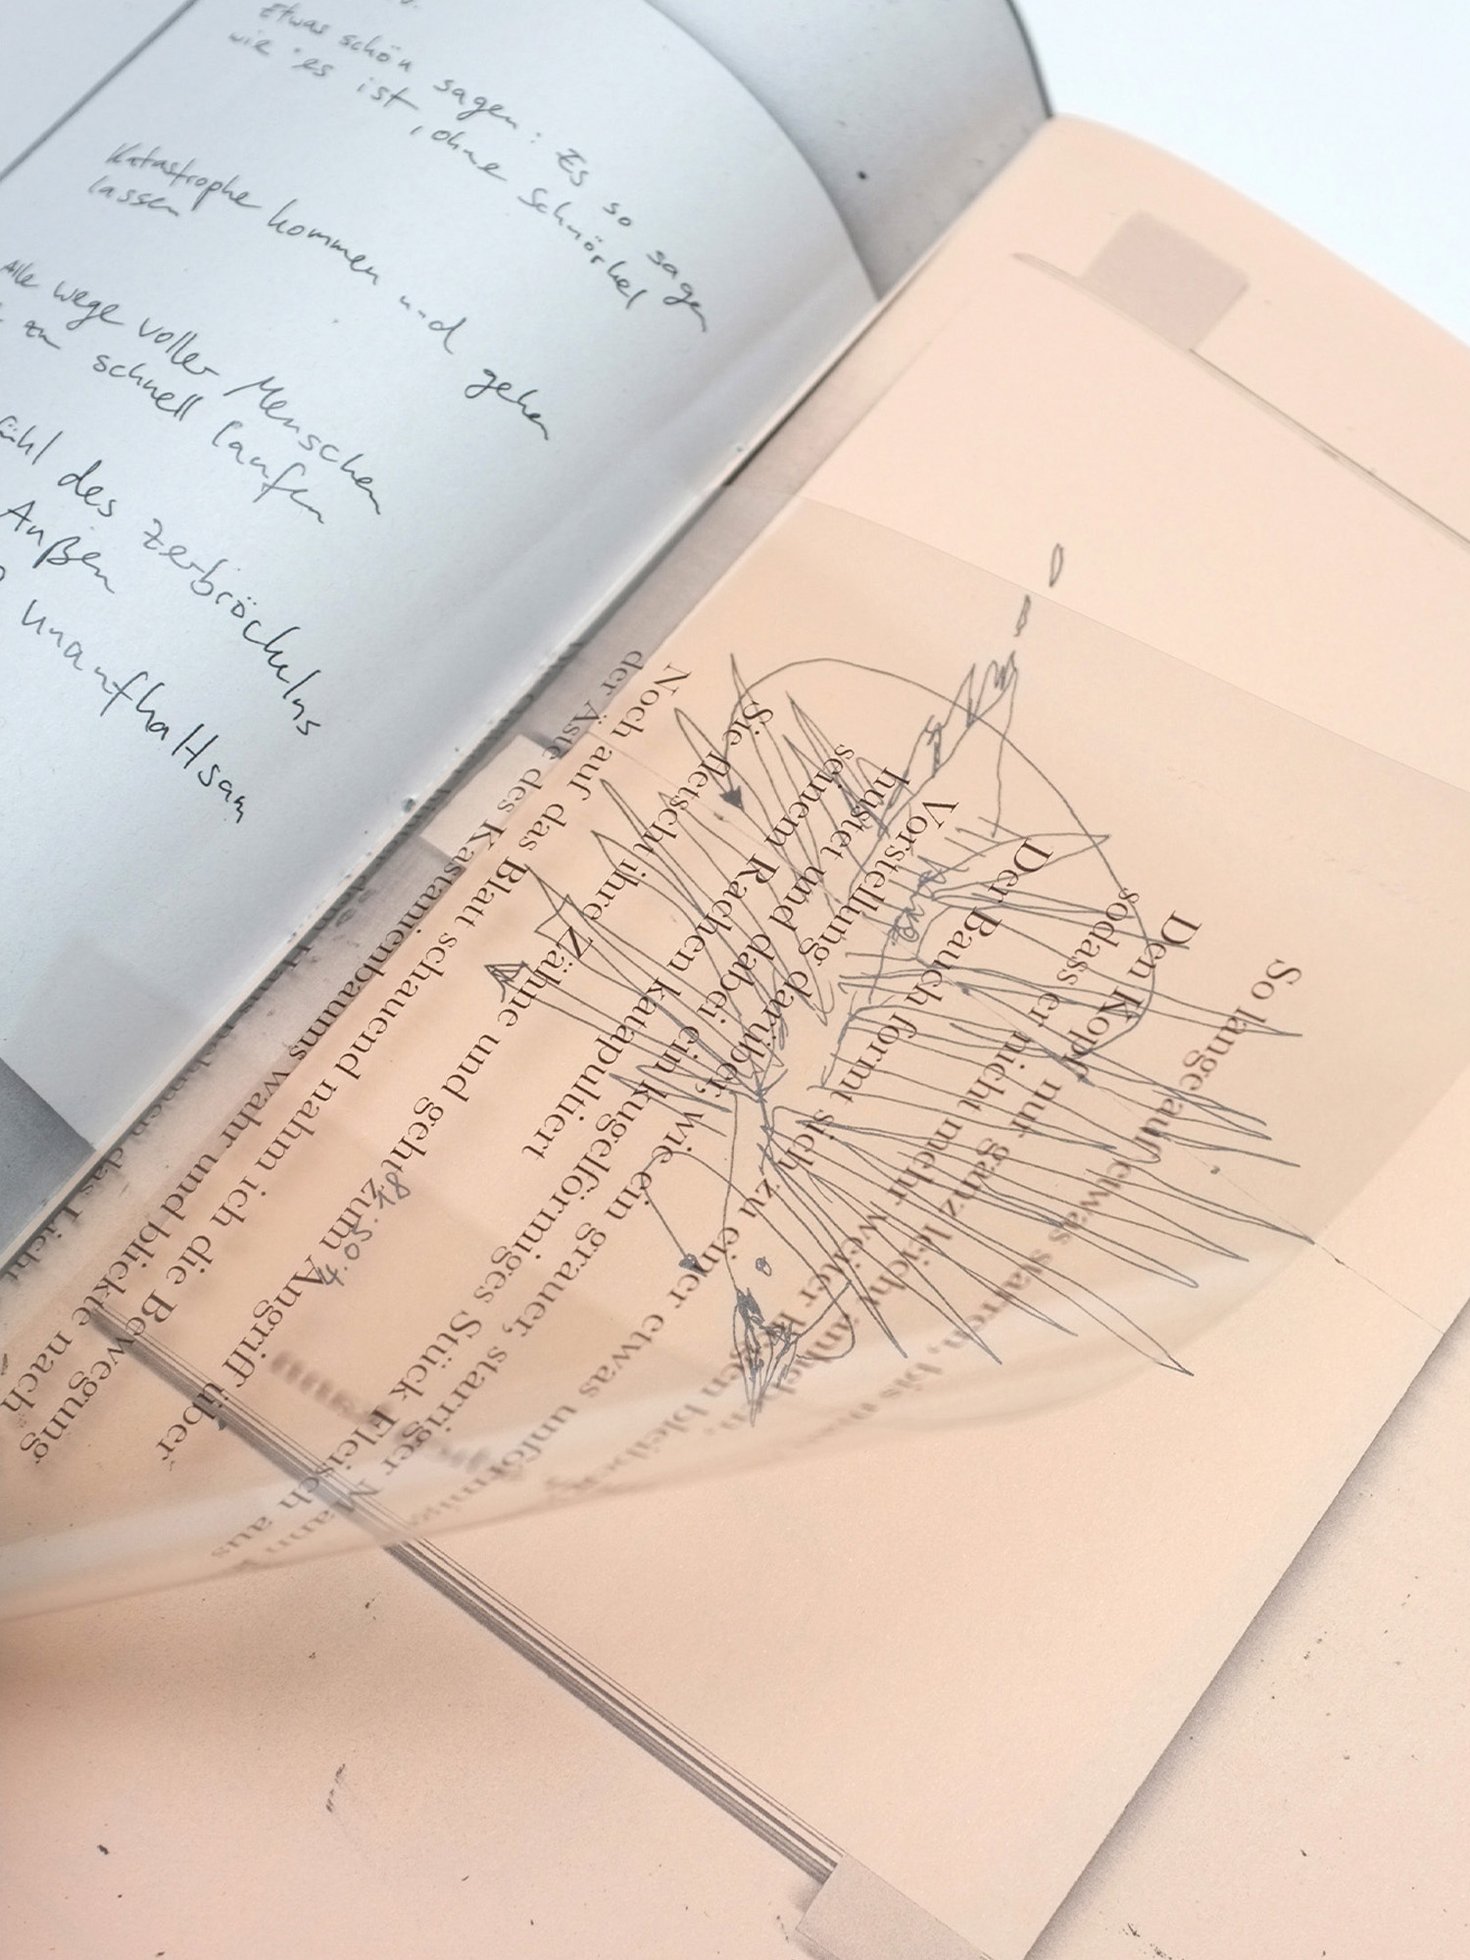 Etwas schön sagen: Es so sagen
wie es ist, ohne Schnörkel
Katastrophe kommen und gehen
lassen
Alle wege voller Menschen
zu schnell laufen
des zerbröckelns
Außen
unaufhaltsam
So lange auf etwas starren, bis
Den Kopf nur ganz leicht anheben,
sodass er nicht mehr weiter bleiben
Der Bauch formt sich zu einer etwas unförmigen
Vorstellung darüber, wie ein grauer, starriger Mann
hustet und dabei ein kugelförmiges Stück Fleisch aus
seinem Rachen katapultiert
Sie fletscht ihre Zähne und geht zum Angriff über
Noch auf das Blatt schauend nahm ich die Bewegung
der Äste des Kastanienbaums wahr und blickte nach
das Licht
4.05.18